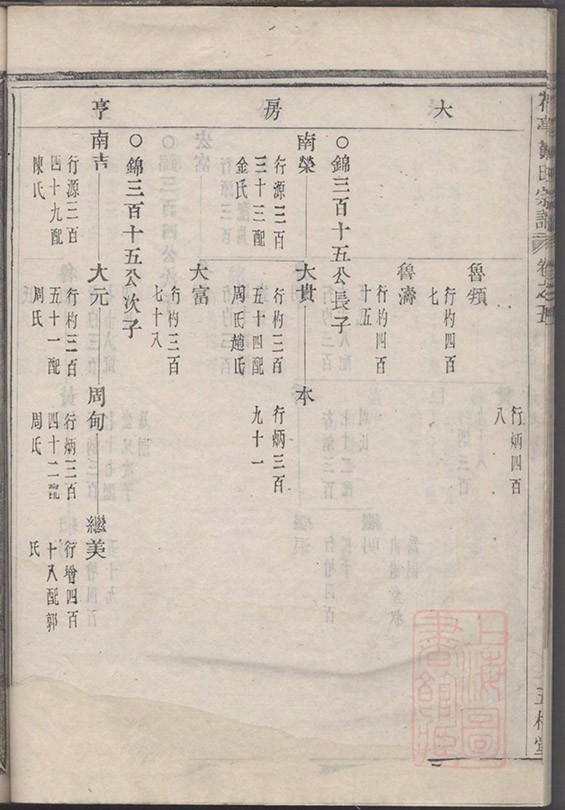 大
房
亨
行炳四百
八
魯頫
行杓四百
七
魯濤
行杓四百
十五
○錦三百十五公長子
南榮
行源三百
三十三配
金氏
大貴
行杓三百
五十四配
周氏趙氏
本
行炳三百
九十一
大富
行杓三百
七十八
○錦三百十五公次子
南吉
行源三百
四十九配
陳氏
大元
行杓三百
五十一配
周氏
周甸
行炳三百
四十二配
周氏
繼美
行增四百
十八配郭
氏
宗譜
卷之五
上海圖
書館藏